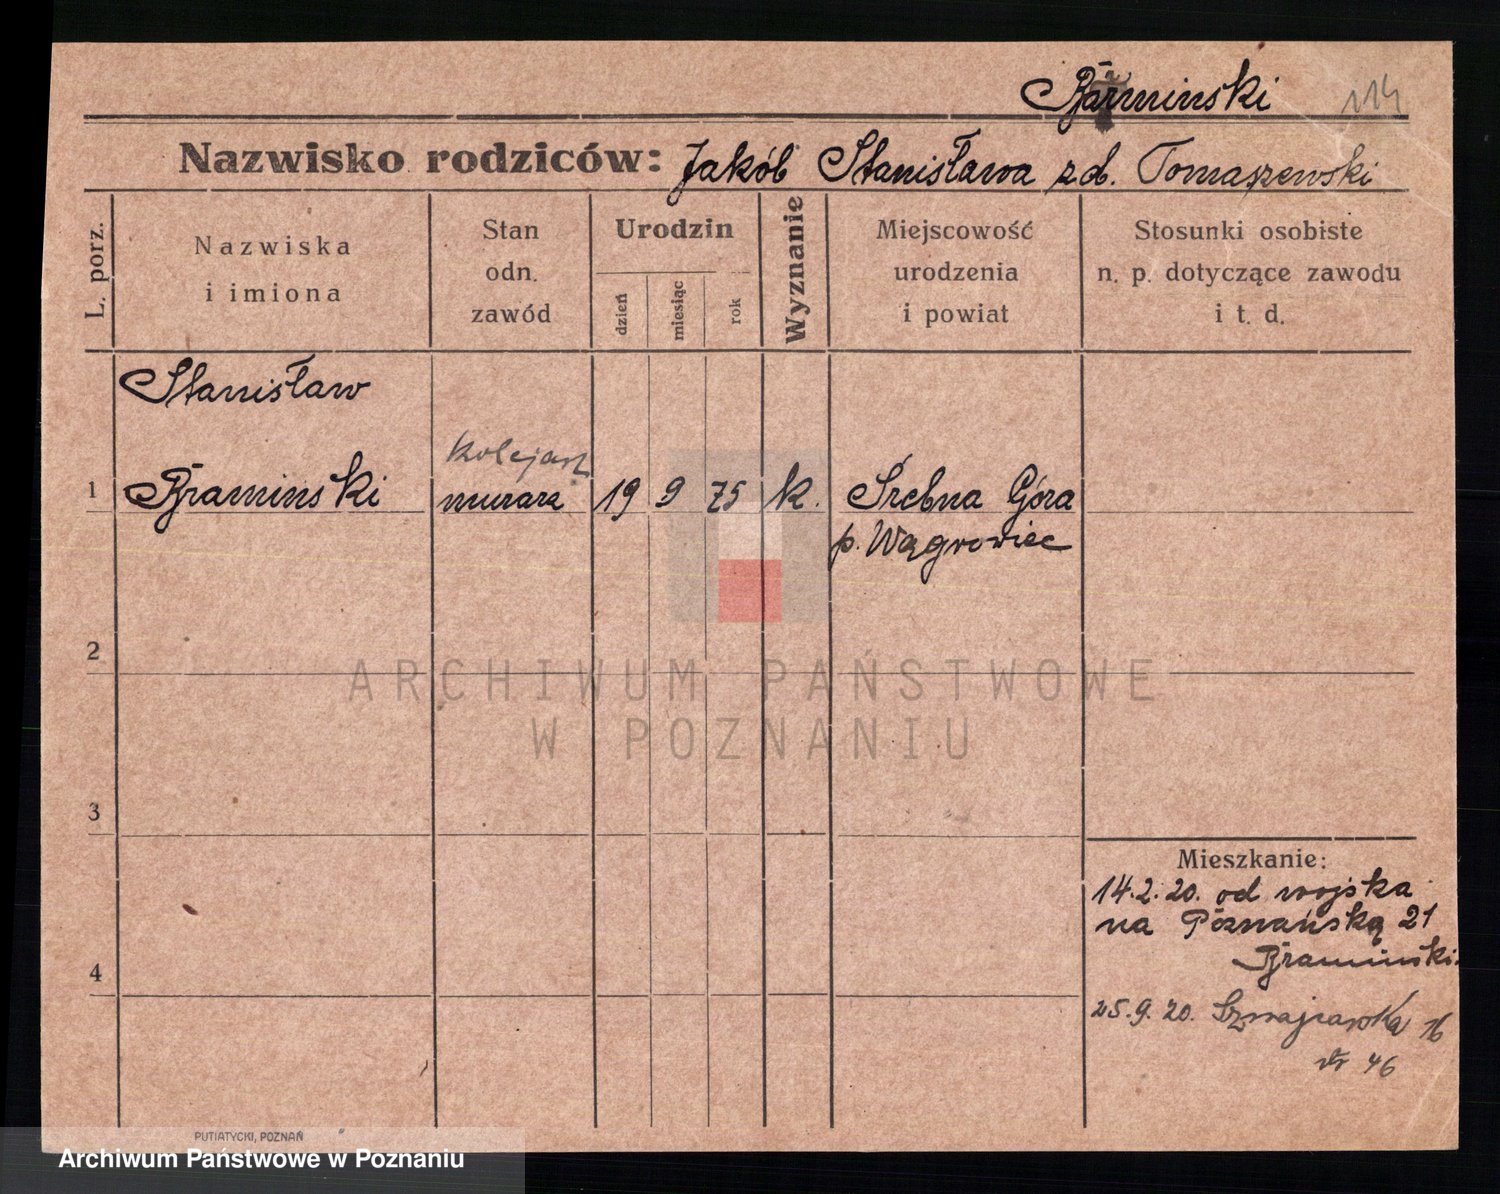 Braminski 114
Nazwisko rodziców: Jakób Stanisława zd. Tomaszewski
L. porz.
Nazwiska
i imiona
Stan
odn.
zawód
Urodzin
dzień
miesiąc
rok
Wyznanie
Miejscowość
urodzenia
i powiat
Stosunki osobiste
n. p. dotyczące zawodu
i t. d.
Stanisław
kolejarz
1 Braminski murarz 19 9 75 k. Srebna Góra
p. Wągrowiec
2
ARCHIWUM PAŃSTWOWE
W POZNANIU
3
Mieszkanie:
14.2.20. od wojska
na Poznańską 21
Braminski.
4
25.9.20. Szwajcarska 16
46
PUTIATYCKI, POZNAŃ
Archiwum Państwowe w Poznaniu